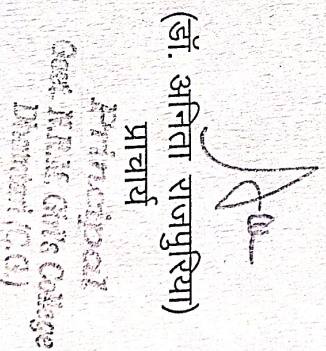 (डॉ. अनिता राजपुरिया)
प्राचार्य
Principal
Govt. Girls College
Dhamtari (C.G.)